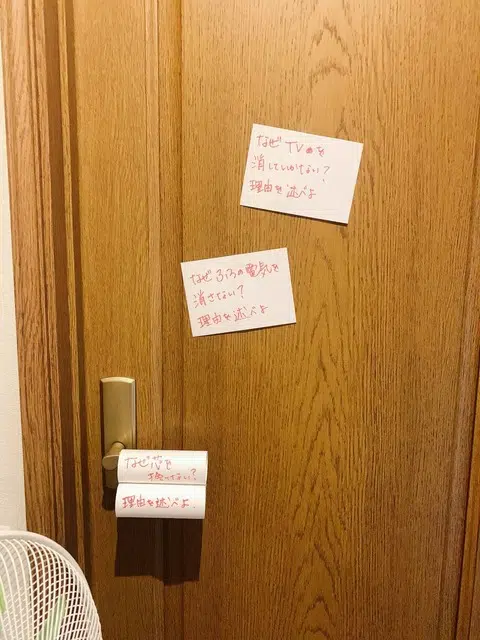 なぜTVを
消していかない?
理由を述べよ
なぜふろの電気を
消さない?
理由を述べよ
なぜ芯を
捨てない?
理由を述べよ.